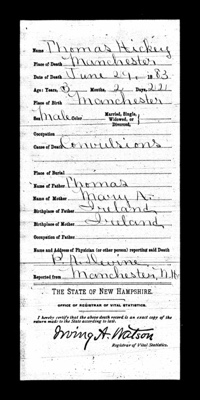 Name Thomas Hickey
Place of Death Manchester
Date of Death June 27, 1883
Age: Years, Months, 2 Days, 22
Place of Birth Manchester
Sex Male Color Married, Single, Widowed, or Divorced,
Occupation
Cause of Death Convulsions
Place of Burial
Name of Father Thomas
Name of Mother Mary A.
Birthplace of Father Ireland
Birthplace of Mother Ireland
Occupation of Father
Name and Address of Physician (or other person) reporting said Death
P. A. Devine
Reported from Manchester, N.H.
THE STATE OF NEW HAMPSHIRE.
OFFICE OF REGISTRAR OF VITAL STATISTICS.
I hereby certify that the above death record is an exact copy of the return made to the State according to law.
Irving A. Watson
Registrar of Vital Statistics.